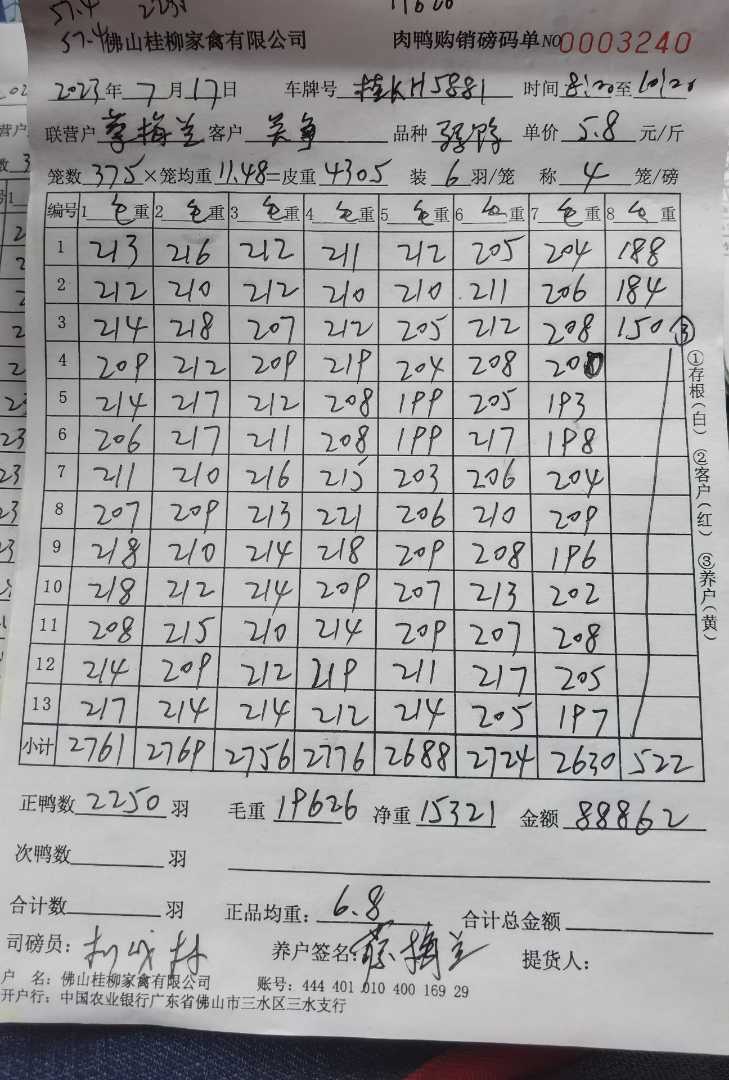 57.4
57.4 佛山桂柳家禽有限公司 肉鸭购销磅码单 NO0003240
2023年 7月17日 车牌号 桂KH5881 时间 8:20至10:20
联营户 蔡梅兰 客户 吴争 品种 单价 5.8 元/斤
笼数 375×笼均重11.48=皮重4305 装 6 羽/笼 称 4 笼/磅
编号 1 毛重 2 毛重 3 毛重 4 毛重 5 毛重 6 毛重 7 毛重 8 毛重
1 213 216 212 211 212 205 204 188
2 212 210 212 210 210 211 206 184
3 214 218 207 212 205 212 208 150 ③
4 209 212 209 219 204 208 200
5 214 217 212 208 199 205 193
6 206 217 211 208 199 217 198
7 211 210 216 215 203 206 204
8 207 209 213 221 206 210 209
9 218 210 214 218 209 208 196
10 218 212 214 209 207 213 202
11 208 215 210 214 209 207 208
12 214 209 212 219 211 217 205
13 217 214 214 212 214 205 197
小计 2761 2769 2756 2776 2688 2724 2630 522
①存根(白) ②客户(红) ③养户(黄)
正鸭数 2250 羽 毛重 19626 净重 15321 金额 88862
次鸭数 羽
合计数 羽 正品均重: 6.8 合计总金额
司磅员: 养户签名: 蔡梅兰 提货人:
户 名: 佛山桂柳家禽有限公司 账号: 444 401 010 400 169 29
开户行: 中国农业银行广东省佛山市三水区三水支行